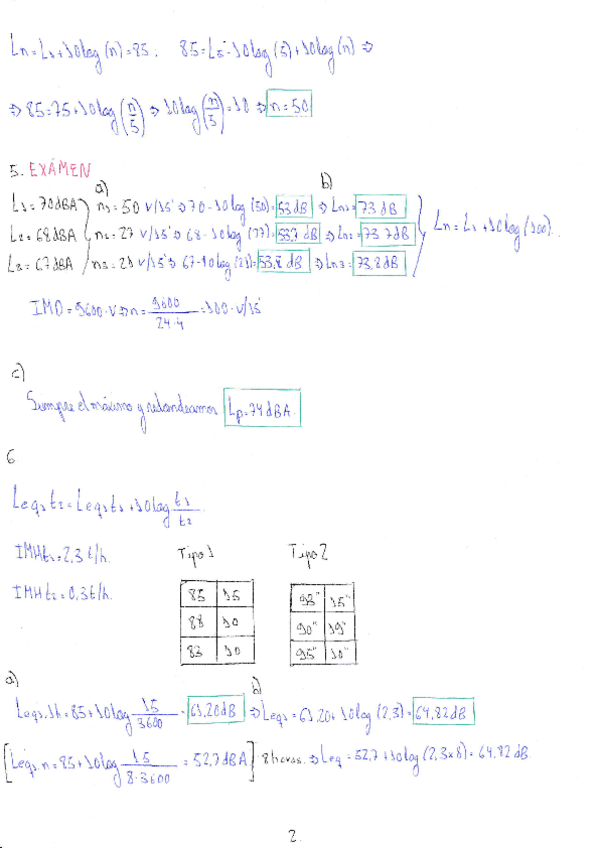 Ln = L1 + 10 log (n) = 85 ; 85 = L5 - 10 log (5) + 10 log (n) ⇒
⇒ 85 = 75 + 10 log (n/5) ⇒ 10 log (n/5) = 10 ⇒ n = 50
5. EXÁMEN
a) b)
L1 = 70 dBA n1 = 50 v/15' ⇒ 70 - 10 log (50) = 53 dB ⇒ Ln1 = 73 dB
L2 = 68 dBA n2 = 27 v/15' ⇒ 68 - 10 log (27) = 53,7 dB ⇒ Ln2 = 73,7 dB Ln = L1 + 10 log (100).
L3 = 67 dBA n3 = 21 v/15' ⇒ 67 - 10 log (21) = 53,8 dB ⇒ Ln3 = 73,8 dB
IMD = 9600 v ⇒ n = 9600/24·4 = 100 v/15'
c)
Siempre el máximo y redondeamos Lp = 74 dBA.
6
Leq1 t2 = Leq1 t1 + 10 log t1/t2
IMH t1 = 2,3 t/h. Tipo 1 Tipo 2
IMH t2 = 0,3 t/h.
85 15 93" 15"
88 10 90" 19"
83 10 95" 10"
a) b)
Leq1.1h = 85 + 10 log 15/3600 = 61,20 dB ⇒ Leq1 = 61,20 + 10 log (2,3) = 64,82 dB
[Leq1.n = 85 + 10 log 15/8·3600 = 52,7 dBA] 8 horas. ⇒ Leq = 52,7 + 10 log (2,3x8) = 64,82 dB.
2.